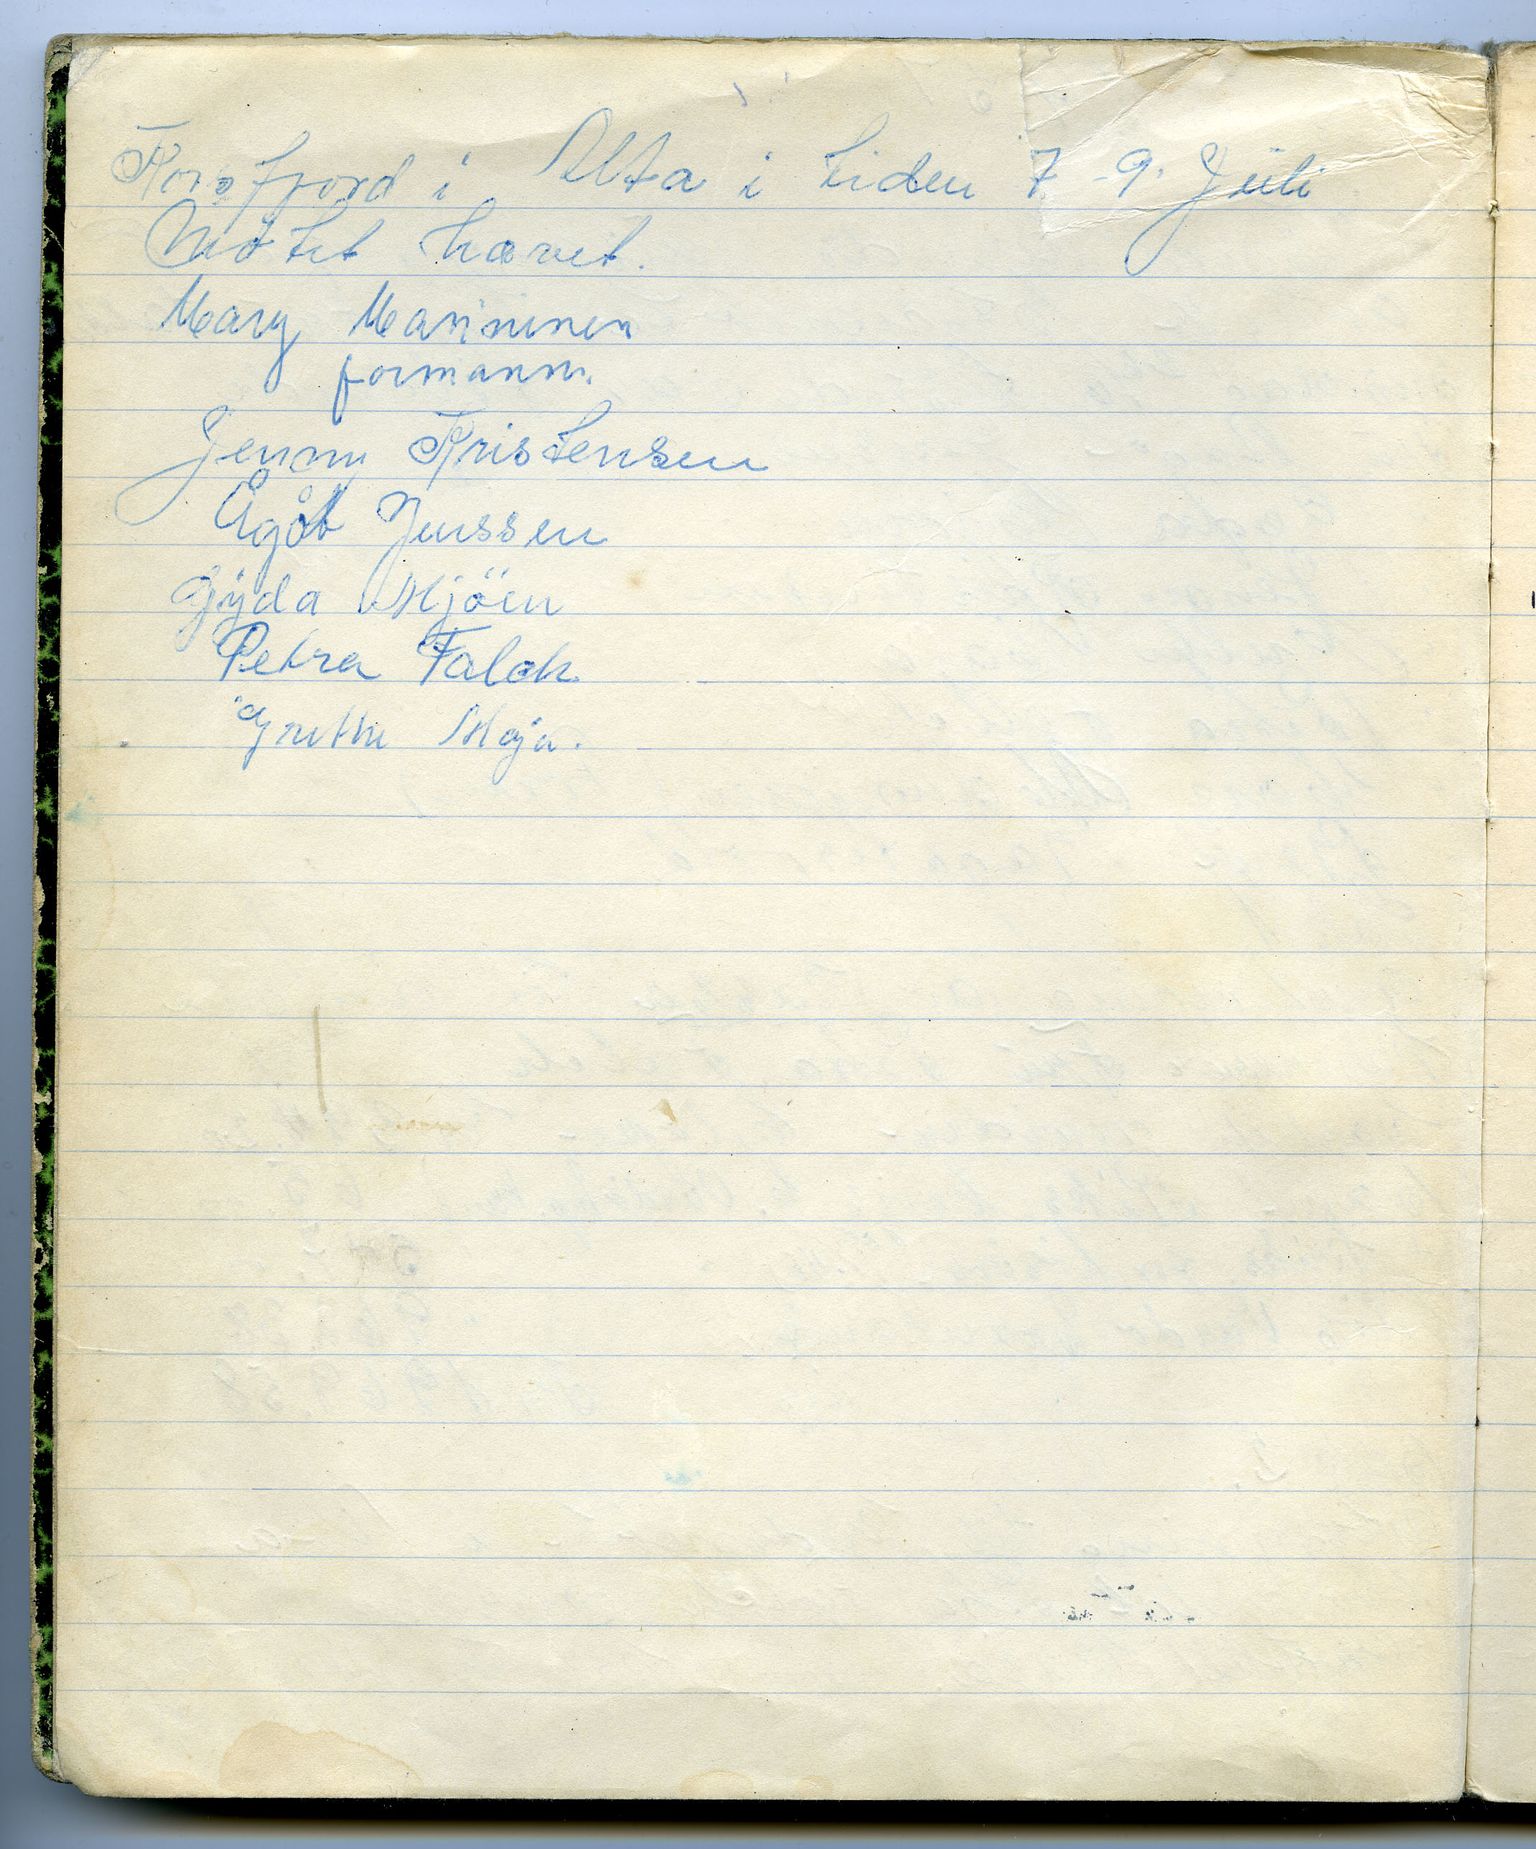 Korsfjord i Alta i tiden 7-9. Juli
Møtet hævet.
Mary Manninen
formann.
Jenny Kristensen
Ågot Jenssen
Gyda Mjöen
Petra Falck
Grethe Moja.